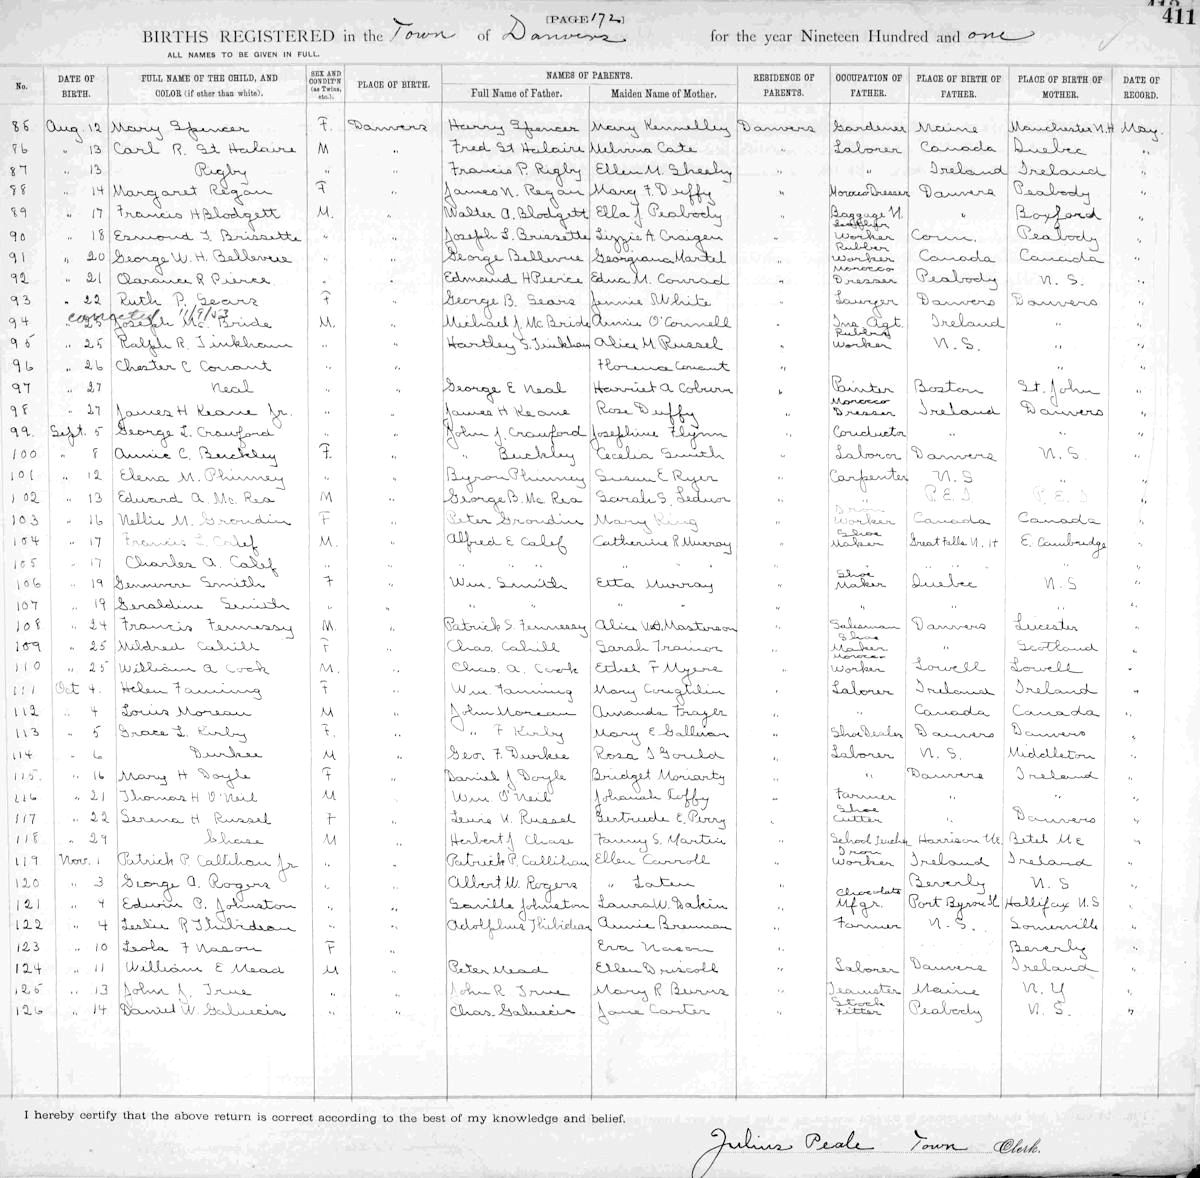 411
[PAGE 172]
BIRTHS REGISTERED in the Town of Danvers for the year Nineteen Hundred and one
ALL NAMES TO BE GIVEN IN FULL.
No. DATE OF BIRTH. FULL NAME OF THE CHILD, AND COLOR (if other than white). SEX AND CONDIT'N (as Twins, etc.). PLACE OF BIRTH. NAMES OF PARENTS. Full Name of Father. Maiden Name of Mother. RESIDENCE OF PARENTS. OCCUPATION OF FATHER. PLACE OF BIRTH OF FATHER. PLACE OF BIRTH OF MOTHER. DATE OF RECORD.
85 Aug. 12 Mary Spencer F. Danvers Harry Spencer Mary Kennelley Danvers Gardener Maine Manchester N.H May.
86 " 13 Carl R. St Halaire M " Fred St Halaire Melvina Cate " Laborer Canada Quebec "
87 " 13 Rigby " " Francis P. Rigby Ellen M. Sheehy " " Ireland Ireland "
88 " 14 Margaret Regan F " James N. Regan Mary F. Duffy " Morocco Dresser Danvers Peabody "
89 " 17 Francis H Blodgett M. " Walter A. Blodgett Ella J Peabody " Baggage M. " Boxford "
90 " 18 Esmond T. Brissette " " Joseph L. Brissette Lizzie A. Craigen " Leather Worker Conn. Peabody "
91 " 20 George W. H. Bellevue " " George Bellevue Georgiana Martel " Rubber Worker Canada Canada "
92 " 21 Clarance R Pierce " " Edmund H Pierce Edna M. Conrad " Morocco Dresser Peabody N. S. "
93 " 22 Ruth P. Sears F " George B. Sears Jennie White " Lawyer Danvers Danvers "
corrected 11/9/53
94 " 25 Joseph Mc. Bride M. " Michael J. McBride Annie O'Connell " Ins Agt. Ireland " "
95 " 25 Ralph R. Tinkham " " Hartley S. Tinkham Alice M Russel " Rubber Worker N. S. " "
96 " 26 Chester C Conant " " Florence Conant "
97 " 27 Neal " " George E Neal Harriet A Coburn " Painter Boston St. John "
98 " 27 James H Keane Jr. " " James H Keane Rose Duffy " Morocco Dresser Ireland Danvers "
99. Sept. 5 George L. Crawford " " John J. Crawford Josephine Flynn " Conductor " " "
100 " 8 Annie C. Buckley F. " " Buckley Cecelia Smith " Laborer Danvers N. S. "
101 " 12 Elena M. Phinney " " Byron Phinney Susan E Ryer " Carpenter N. S " "
102 " 13 Edward A. Mc. Rea M " George B. Mc Rea Sarah S. " " P. E. I P. E. I "
103 " 16 Nellie M. Groudin F " Peter Groudin Mary King " Iron Worker Canada Canada "
104 " 17 Francis L. Calef M. " Alfred E Calef Catherine R Murray " Shoe Maker Great Falls N. H E. Cambridge "
105 " 17 Charles A. Calef " " " " " " " " "
106 " 19 Genevieve Smith F " Wm. Smith Etta Murray " Shoe Maker Quebec N. S "
107 " 19 Geraldine Smith " " " " " " " " "
108 " 24 Francis Fennessy M. " Patrick S. Fennessy Alice Masterson " Salesman Danvers Leicester "
109 " 25 Mildred Cahill F " Chas. Cahill Sarah Trainor " Shoe Maker " Scotland "
110 " 25 William A Cook M. " Chas. A. Cook Ethel F Myers " Morocco Worker Lowell Lowell "
111 Oct 4. Helen Fanning F " Wm. Fanning Mary Coughlin " Laborer Ireland Ireland "
112 " 4 Louis Moreau M " John Moreau Amanda Frazer " " Canada Canada "
113 " 5 Grace L. Kirby F. " " F Kirby Mary E Gallivan " Shoe Dealer Danvers Danvers "
114 " 6 Durkee M " Geo. F. Durkee Rosa I Gould " Laborer N. S. Middleton "
115. " 16 Mary H Doyle F " Daniel J Doyle Bridget Moriarty " " Danvers Ireland "
116 " 21 Thomas H O'Neil M " Wm. O'Neil Johanah Coffy " Farmer " " "
117 " 22 Serena H Russel F " Lewis W. Russel Gertrude E. Perry " Shoe Cutter " Danvers "
118 " 29 Chase M " Herbert J Chase Fanny S. Martin " School Teacher Harrison Me. Betel Me "
119 Nov. 1 Patrick P. Callihan Jr " " Patrick P. Callihan Ellen Carroll " Iron Worker Ireland Ireland "
120 " 3 George A. Rogers " " Albert W. Rogers " " " Beverly N. S "
121 " 4 Edwin P. Johnston " " Saville Johnston Laura W. Dakin " Chocolate Mfgr. Port Byron Ill Hallifax N. S "
122 " 4 Leslie R Thibideau " " Adolphus Thibideau Annie Brennan " Farmer N. S. Somerville "
123 " 10 Leola F Nason F " Eva Nason " Beverly "
124 " 11 William E Mead M " Peter Mead Ellen Driscoll " Laborer Danvers Ireland "
125 " 13 John J. True " " John R True Mary R Burns " Teamster Maine N. Y "
126 " 14 Daniel W. Galuccia " " Chas. Galuccia Jane Carter " Stock Fitter Peabody N. S. "
I hereby certify that the above return is correct according to the best of my knowledge and belief.
Julius Peale Town Clerk.